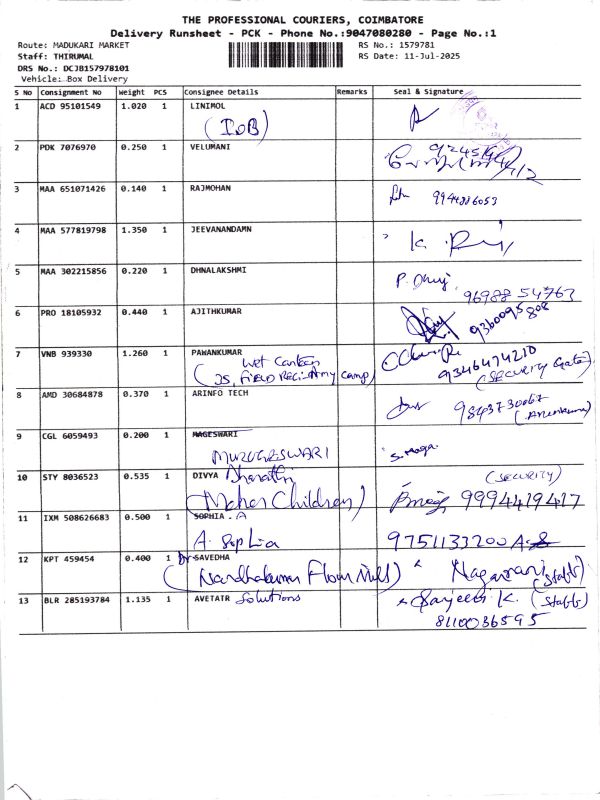 THE PROFESSIONAL COURIERS, COIMBATORE
Delivery Runsheet - PCK - Phone No.:9047080280 - Page No.:1
Route: MADUKARI MARKET RS No.: 1579781
Staff: THIRUMAL RS Date: 11-Jul-2025
DRS No.: DCJB157978101
Vehicle: Box Delivery
S No Consignment No Weight PCS Consignee Details Remarks Seal & Signature
1 ACD 95101549 1.020 1 LINIMOL
(IOB)
2 PDK 7076970 0.250 1 VELUMANI
3 MAA 651071426 0.140 1 RAJMOHAN
9944886053
4 MAA 577819798 1.350 1 JEEVANANDAMN
K.
5 MAA 302215856 0.220 1 DHNALAKSHMI
P.
96988 54763
6 PRO 18105932 0.440 1 AJITHKUMAR
9360095808
7 VNB 939330 1.260 1 PAWANKUMAR
Wet Canteen
Army Camp)
9346474210
(SECURITY Gate)
8 AMD 30684878 0.370 1 ARINFO TECH
9843730067
9 CGL 6059493 0.200 1 MAGESWARI
MURUGESWARI
10 STY 8036523 0.535 1 DIVYA Bharathi
(Maher Children)
(SECURITY)
9994419417
11 IXM 508626683 0.500 1 SOPHIA . A
A. Sophia
9751133200 A.S
12 KPT 459454 0.400 1 Dr SAVEDHA
(Nandhakumar Flour Mills)
Nagamani (Staff)
13 BLR 285193784 1.135 1 AVETATR Solutions
Sanjeeth K. (Staff)
8110036595